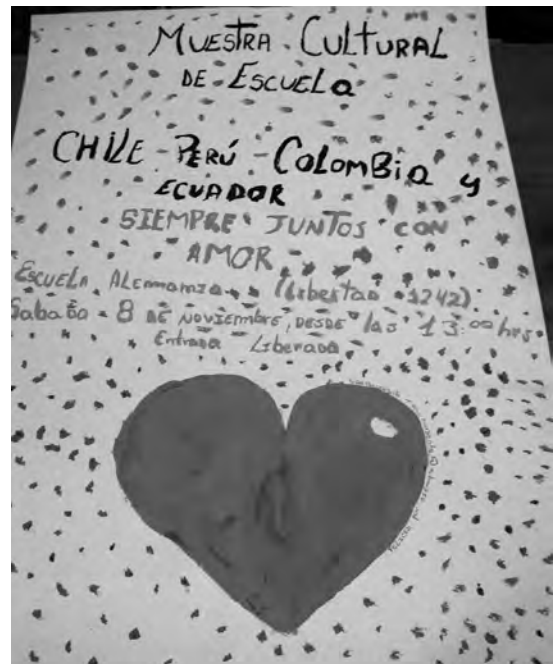 MUESTRA CULTURAL
DE ESCUELA
CHILE - PERÚ - COLOMBIA y
ECUADOR
SIEMPRE JUNTOS CON
AMOR
ESCUELA ALEMANIA (Libertad 1242)
Sabado 8 DE NOVIEMBRE, DESDE las 13:00 hrs
Entrada Liberada